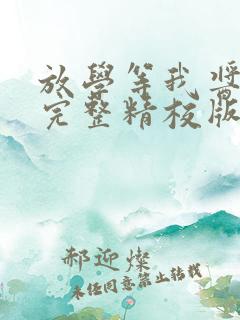 放學等我 醬
完整精校版
郝迎燦
未经同意禁止转载